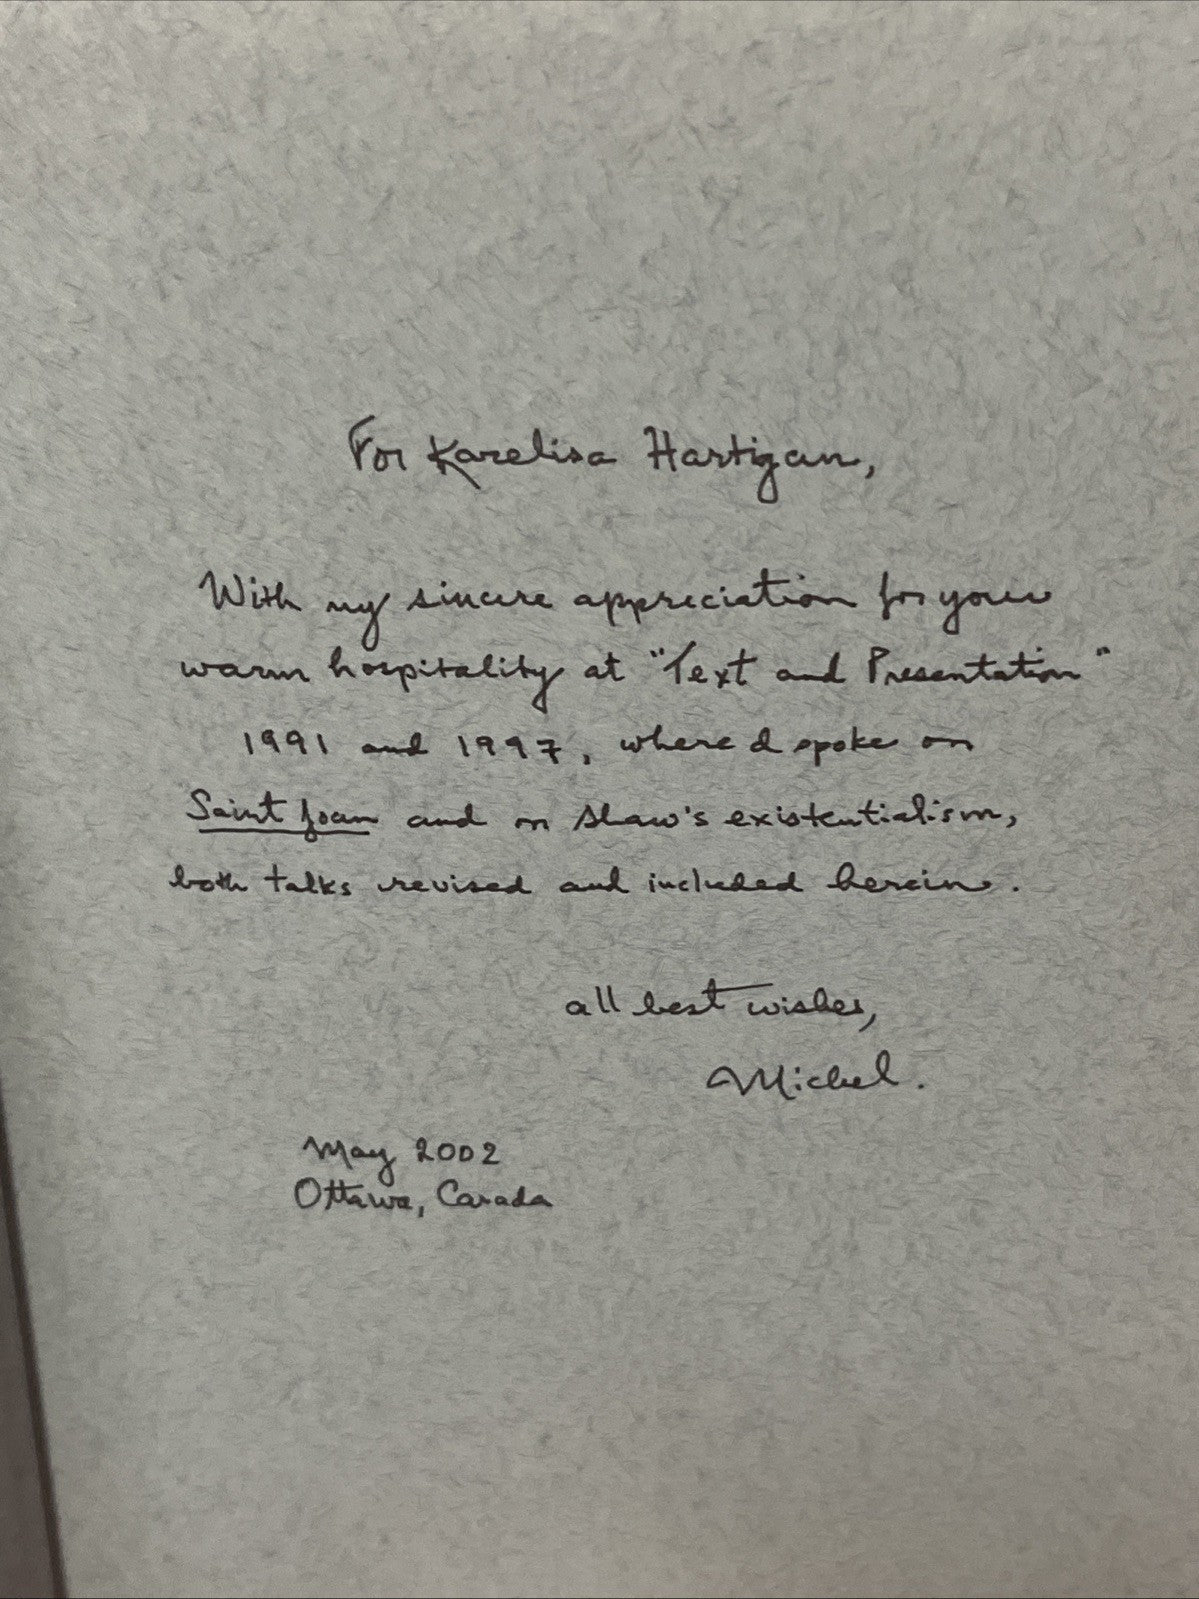 For Karelisa Hartigan,
With my sincere appreciation for your
warm hospitality at "Text and Presentation"
1991 and 1997, where I spoke on
Saint Joan and on Shaw's existentialism,
both talks revised and included herein.
all best wishes,
Michel.
May 2002
Ottawa, Canada